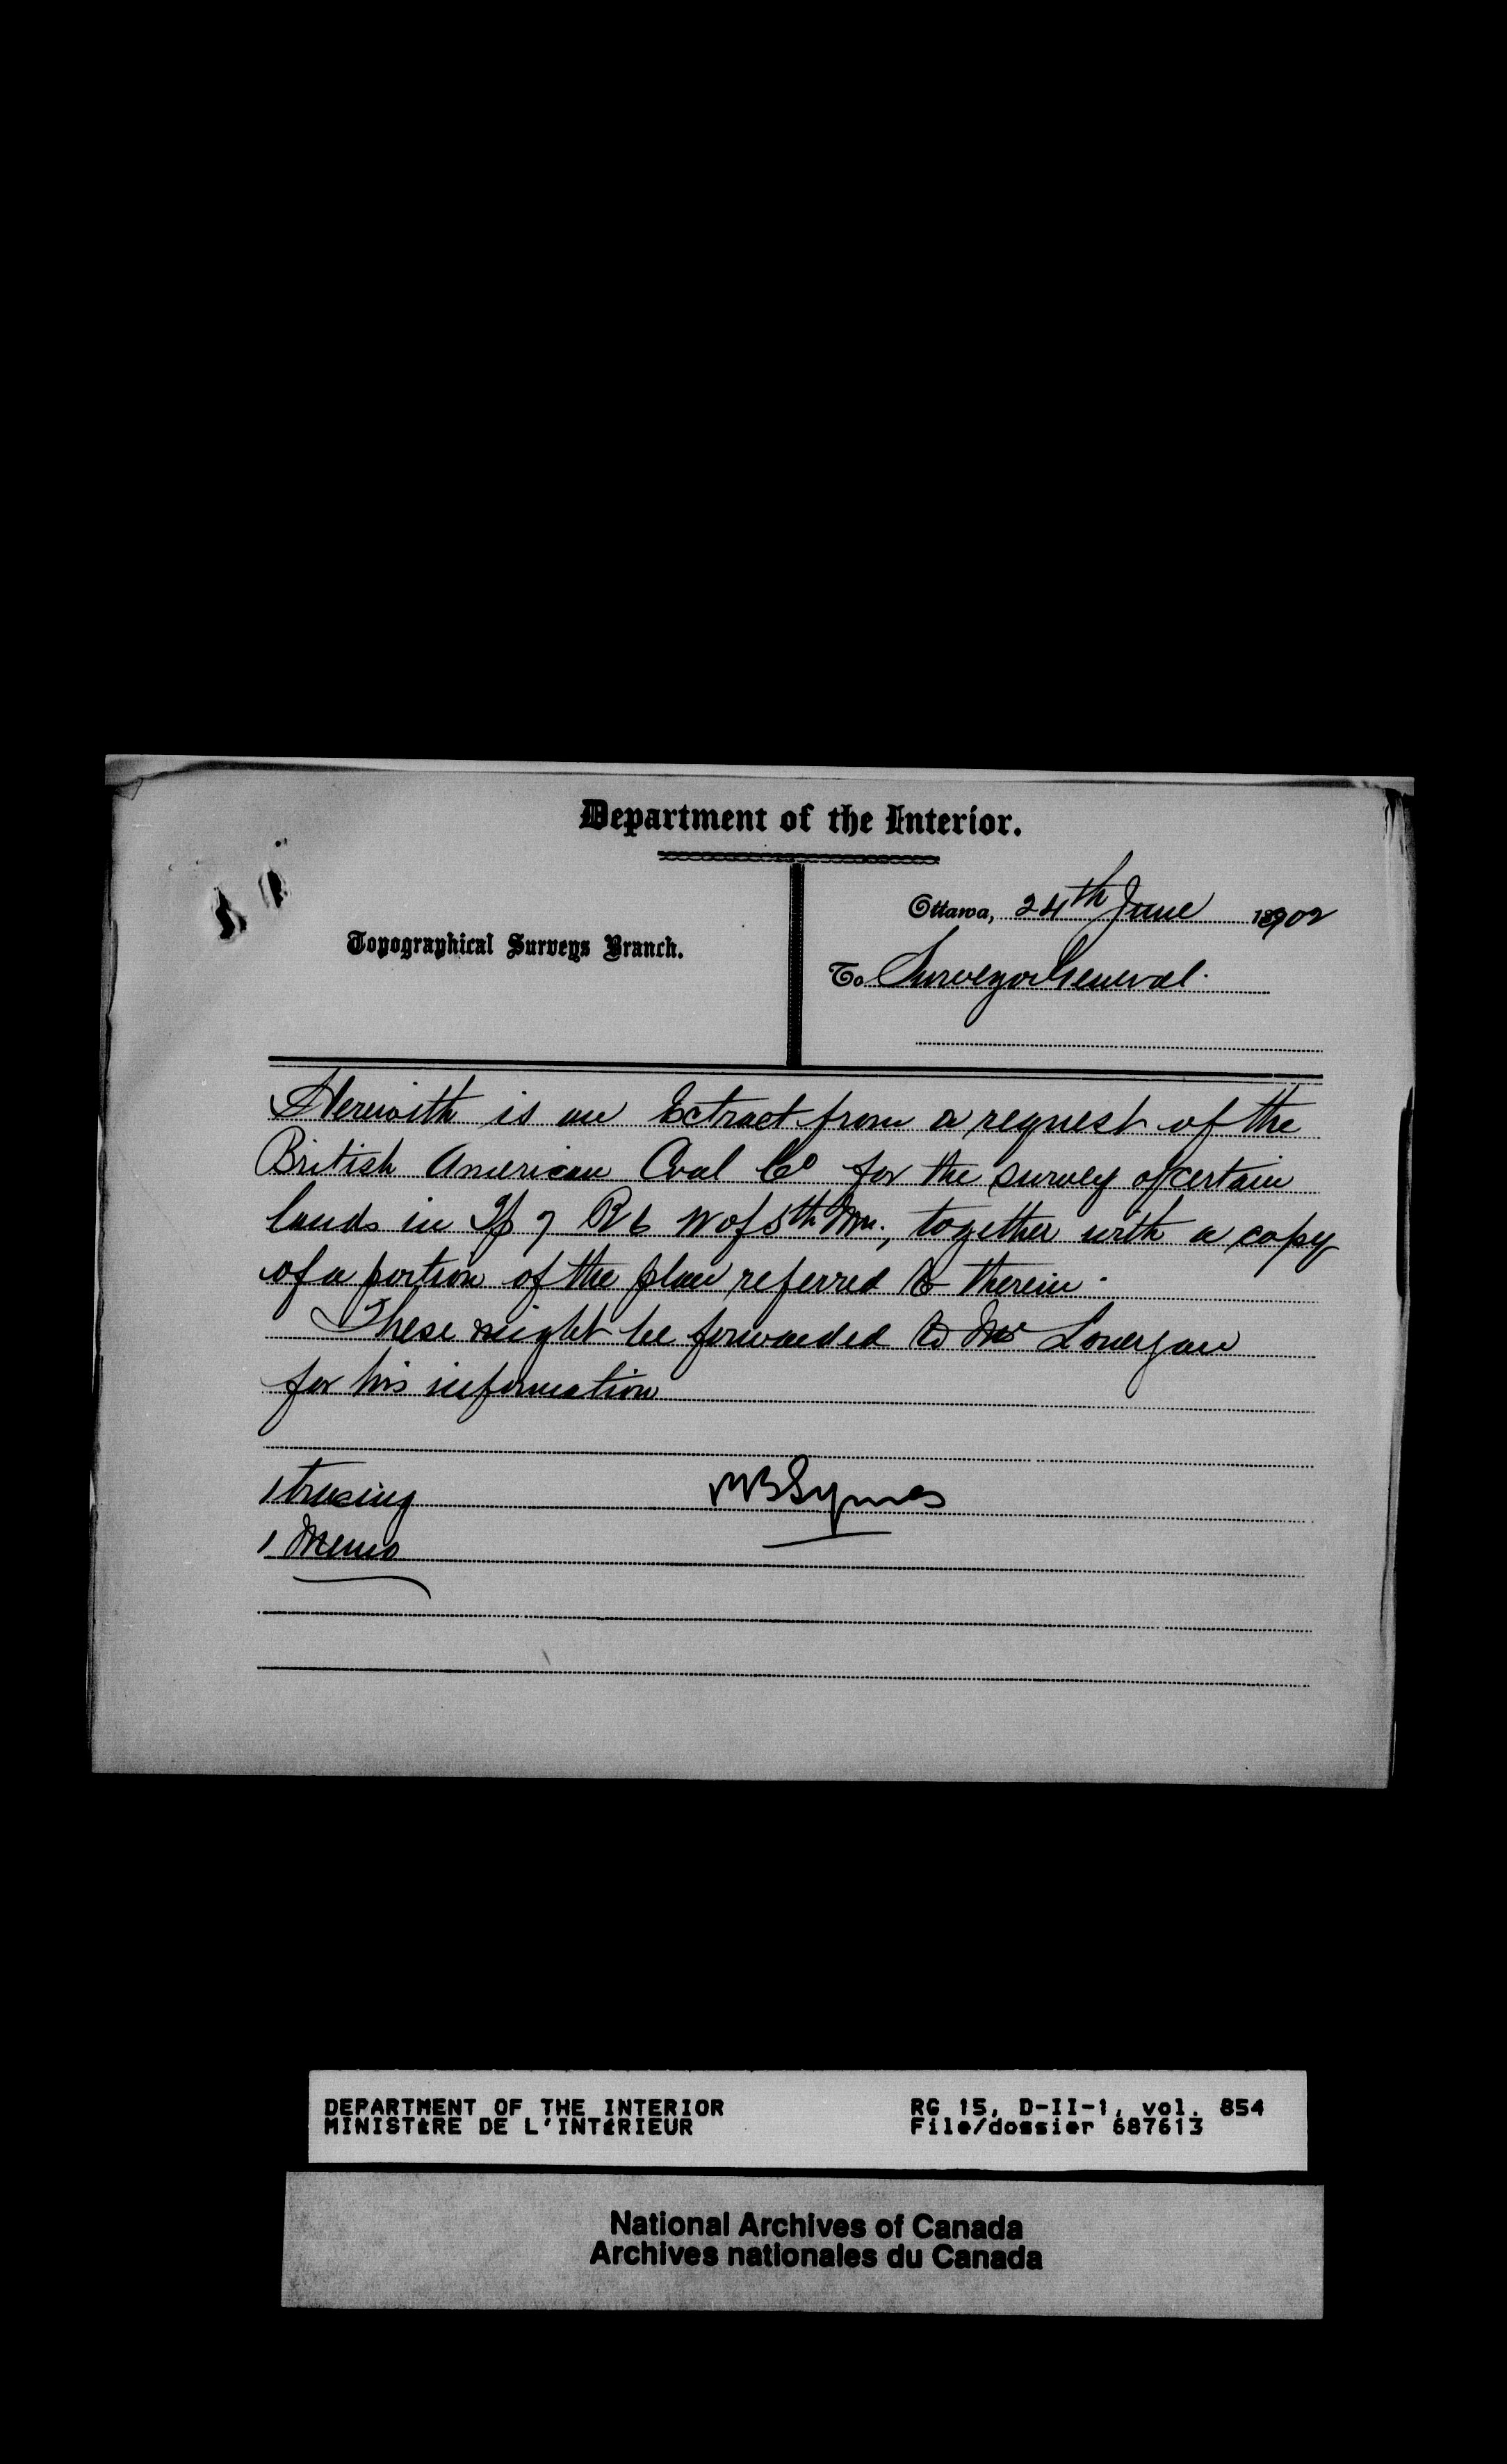 Department of the Interior.
Topographical Surveys Branch.
Ottawa, 24th June 1902
To Surveyor General.
Herewith is an Extract from a request of the
British American Coal Co for the survey of certain
lands in Tp 7 R 6 W of 5th Mn., together with a copy
of a portion of the plan referred to therein.
These might be forwarded to Mr Lonergan
for his information
1 tracing
1 Memo
Symes
DEPARTMENT OF THE INTERIOR
MINISTÈRE DE L'INTÉRIEUR
RG 15, D-II-1, vol. 854
File/dossier 687613
National Archives of Canada
Archives nationales du Canada